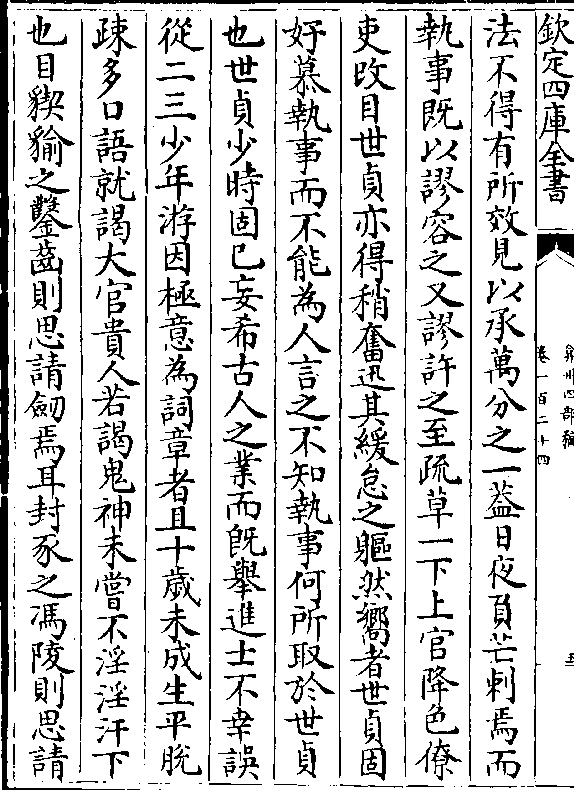 欽定四庫全書
弇州四部稿
卷一百二十四
五
法不得有所效見以承萬分之一葢日夜負芒刺焉而
執事既以謬容之又謬許之至疏草一下上官降色僚
吏改目世貞亦得稍奮迅其緩怠之軀然嚮者世貞固
好慕執事而不能為人言之不知執事何所取於世貞
也世貞少時固已妄希古人之業而旣舉進士不幸誤
從二三少年游因極意為詞章者且十歲未成生平脫
疎多口語就謁大官貴人若謁鬼神未嘗不淫淫汗下
也目猰貐之鑿齒則思請劒焉耳封豕之馮陵則思請